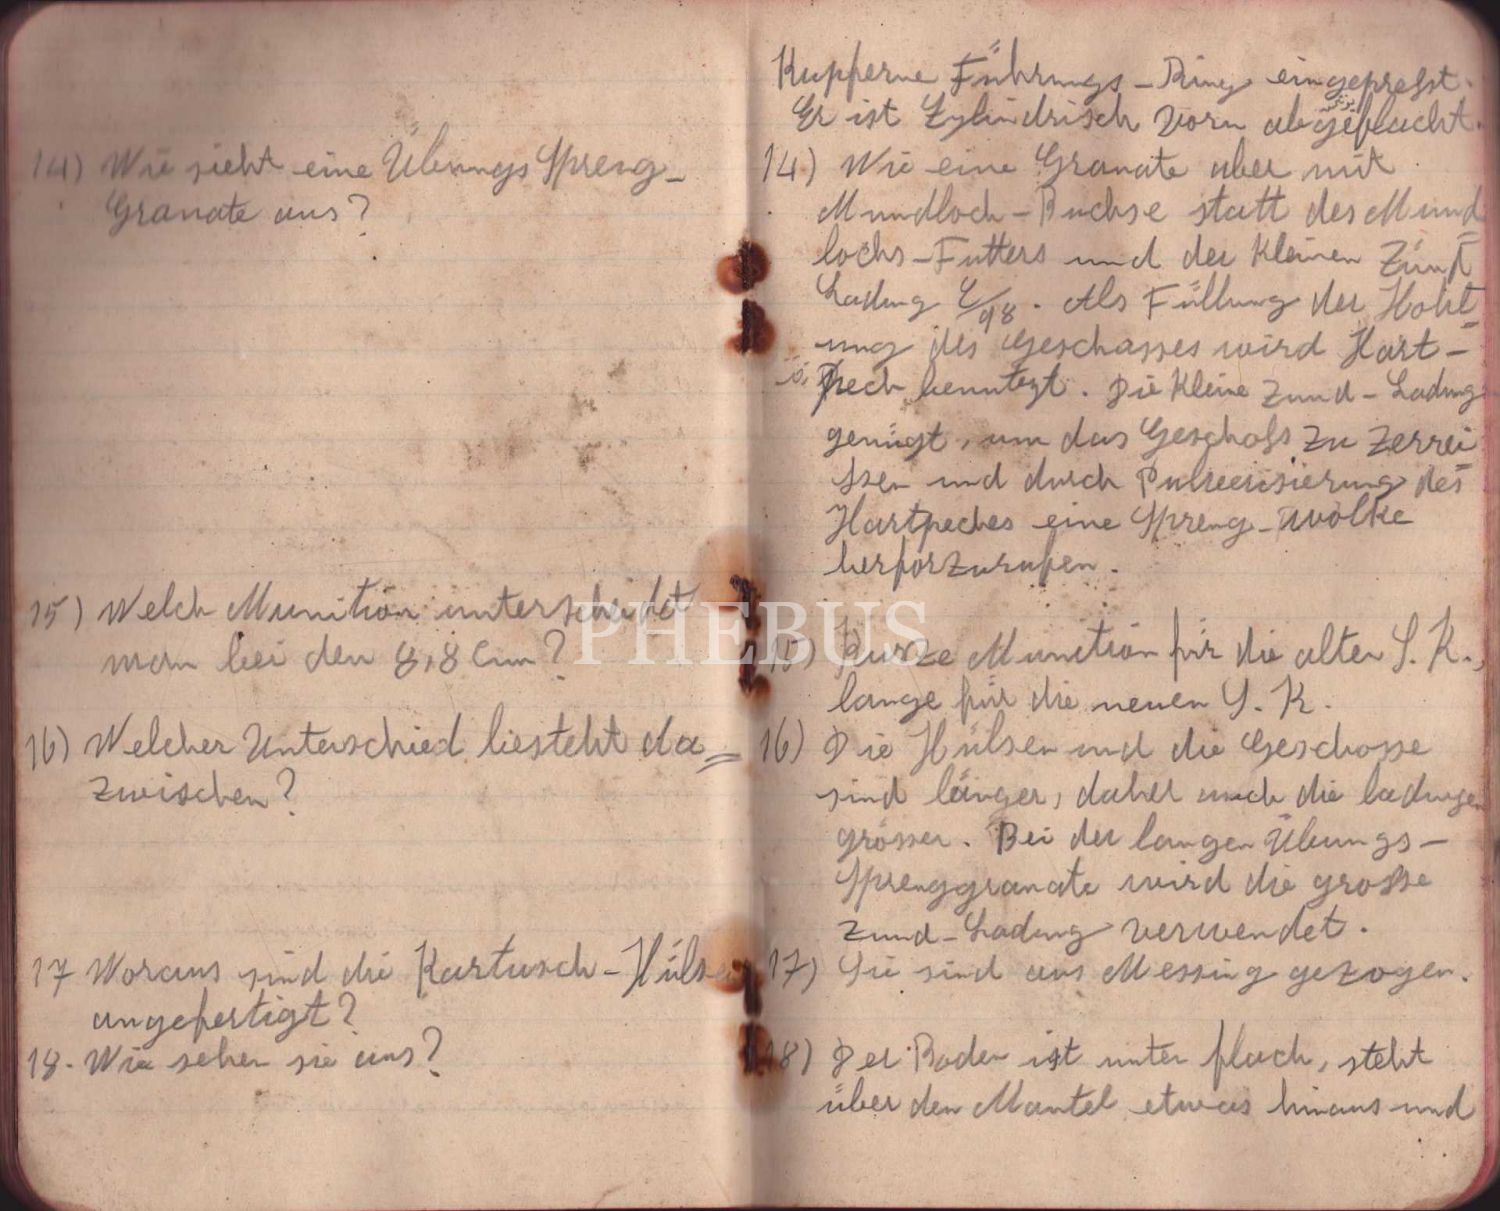 14) Wie sieht eine Übungs Spreng-
Granate aus?
15) Welch Munition unterscheidet
man bei den 8,8 Cm?
16) Welcher Unterschied besteht da=
zwischen?
17 Woraus sind die Kartusch-Hülsen
angefertigt?
18. Wie sehen sie aus?
Kupferne Führungs-Ring eingepreßt.
Er ist Zylindrisch vorn abgeflacht.
14) Wie eine Granate aber mit
Mundloch-Buchse statt des Mund
lochs-Futters und der Kleinen Zünd
Ladung C/98. Als Füllung der Höhl
ung des Geschosses wird Hart-
Pech benutzt. Die Kleine Zund-Ladung
genügt, um das Geschoß zu Zerrei
ssen und durch Pulverisierung des
Hartpeches eine Spreng-wolke
herforzurufen.
PHEBUS
15) Kurze Munition für die alten S. K.,
lange für die neuen S. K.
16) Die Hülsen und die Geschosse
sind länger, daher auch die ladungen
grösser. Bei der langen Übungs-
Sprenggranate wird die grosse
Zund-Ladung verwendet.
17) Sie sind aus Messing gezogen.
18) Der Boden ist unten flach, steht
über den Mantel etwas hinaus und